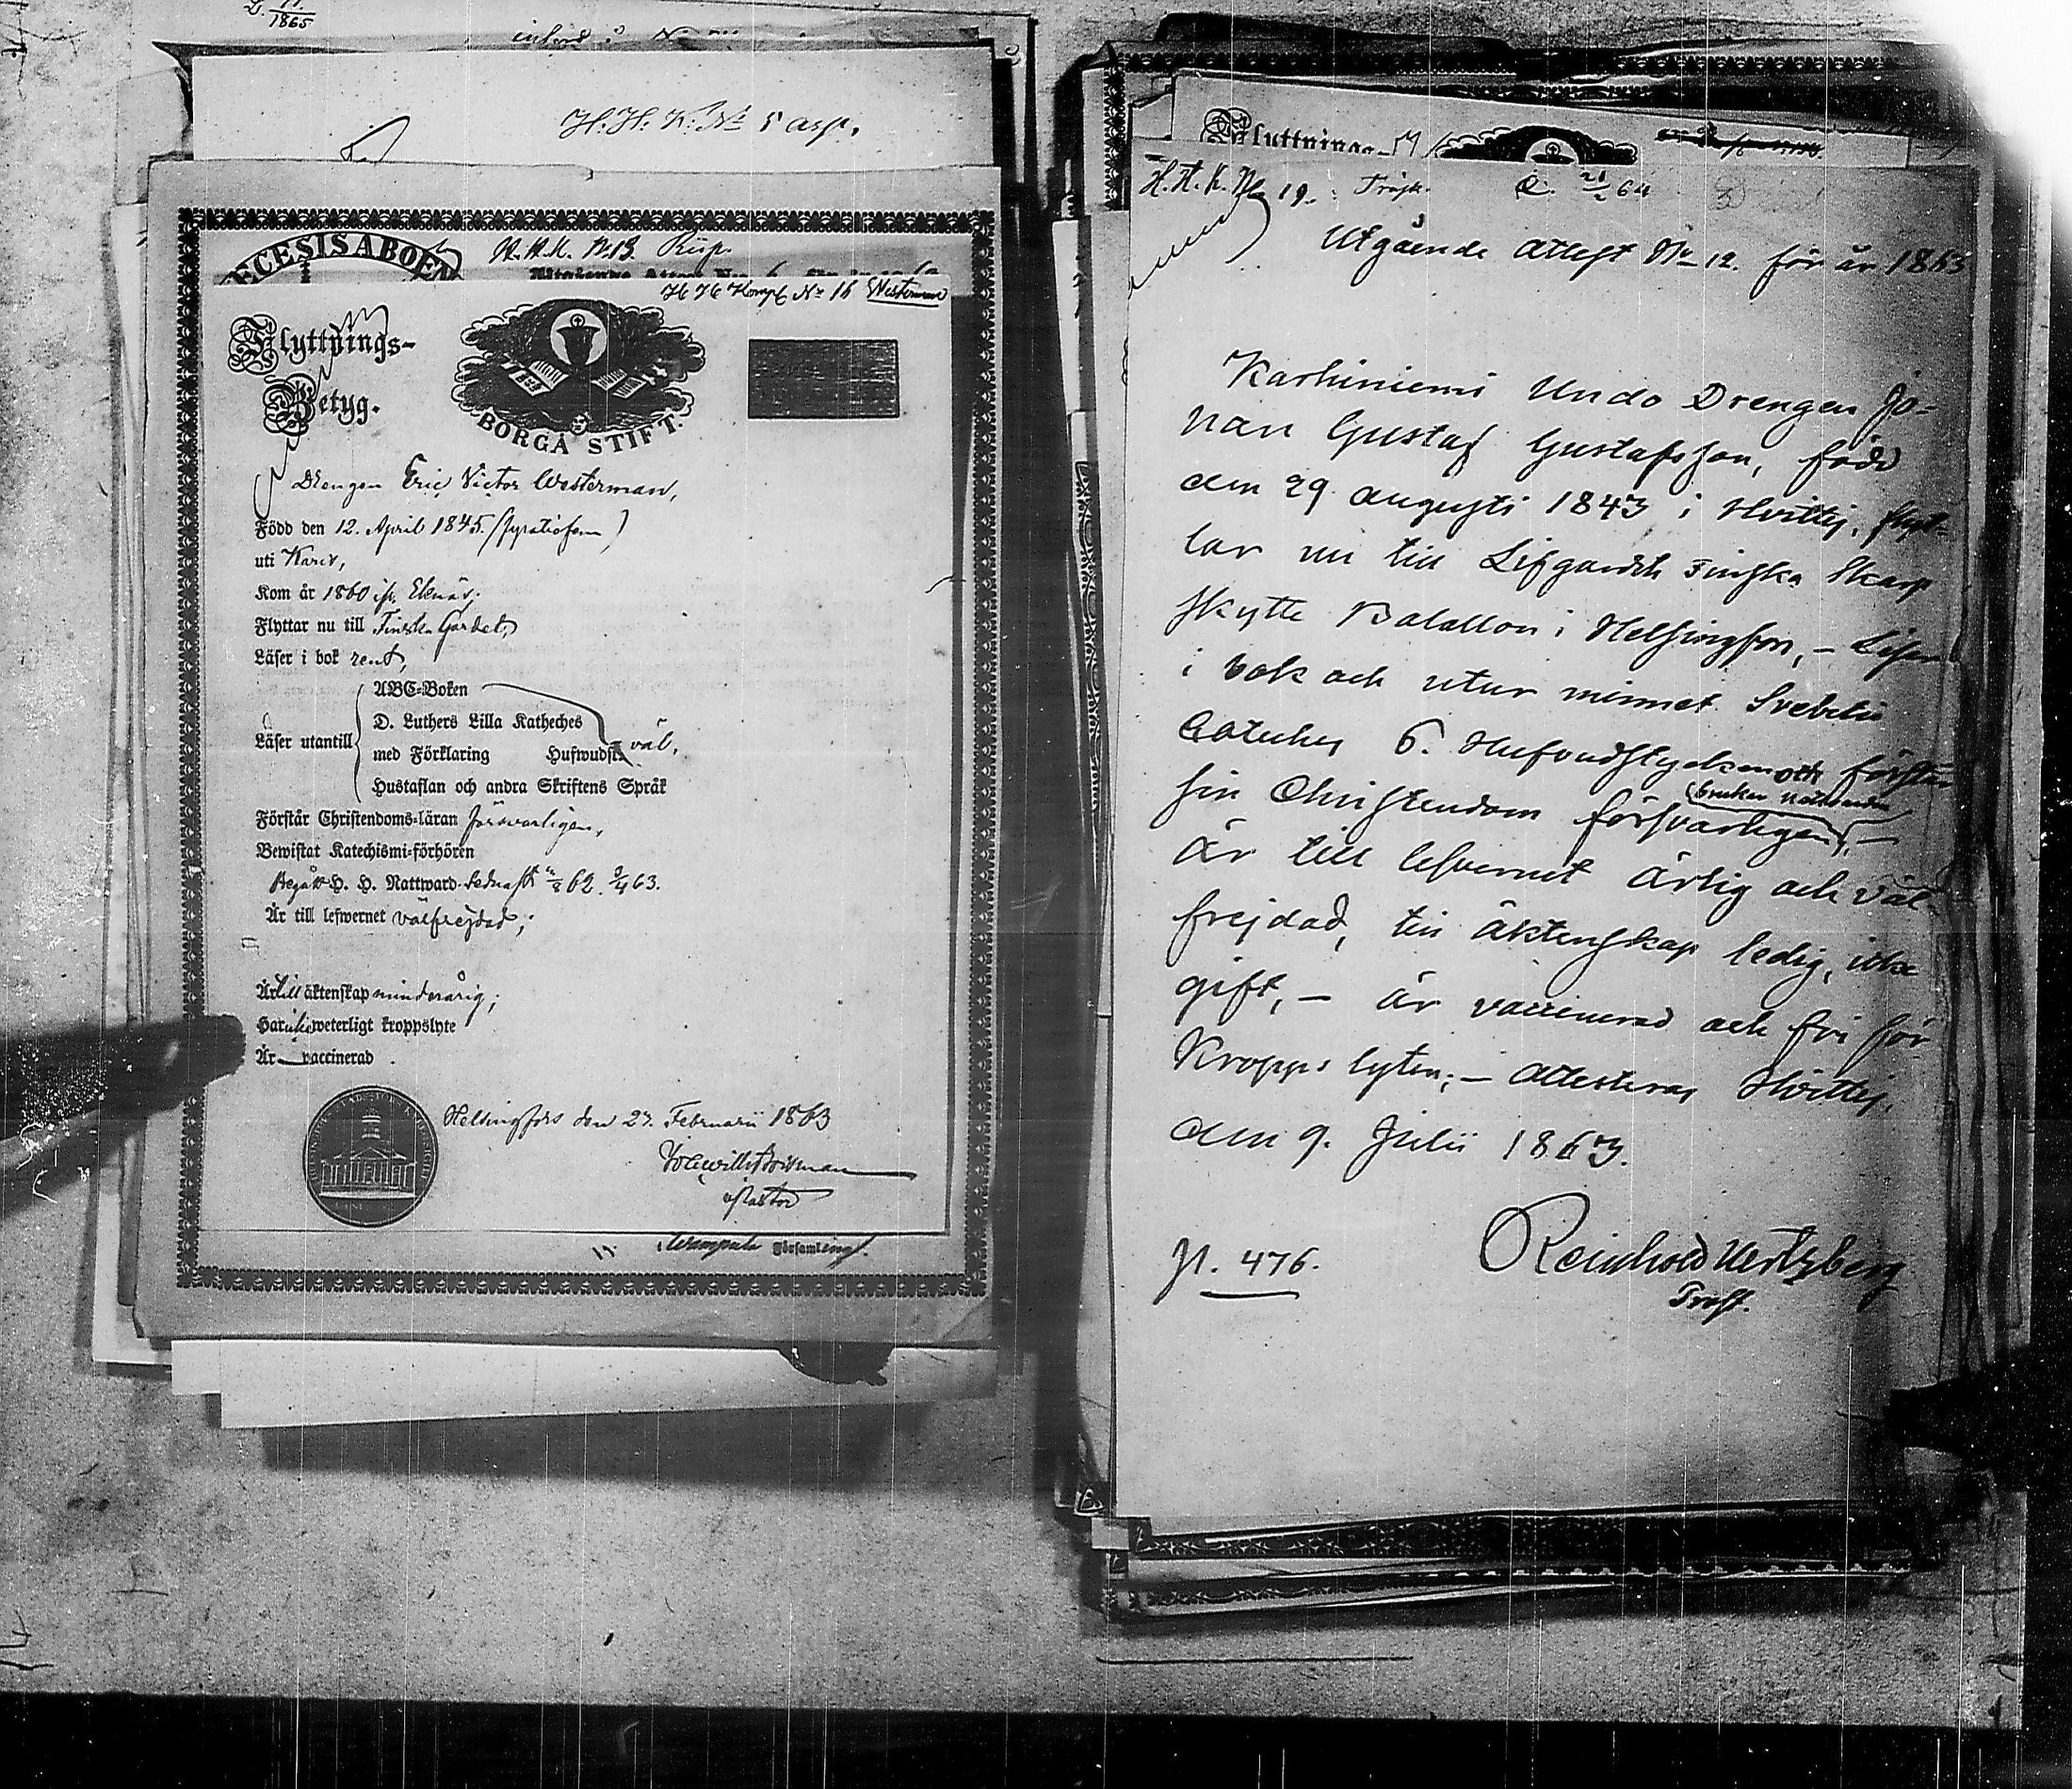 11
1865
H. H. K. No 5 Asp.
ECESIS ABOEN
H. H. K. No 13.
H H Komp No 16 Westerman
Flyttnings-
Betyg.
BORGÅ STIFT.
Drengen Eric Victor Westerman,
Född den 12. April 1845.
uti Karis,
Kom år 1860 ifr. Ekenäs;
Flyttar nu till Finska Gardet,
Läser i bok rent,
ABC-Boken
D. Luthers Lilla Katheches
Läser utantill
med Förklaring Hufwudst. väl,
Hustaflan och andra Skriftens Språk
Förstår Christendoms-läran försvarligen,
Bewistat Katechismi-förhören
Begått H. H. Nattward sednast 62. 63.
Är till lefwernet välfrejdad;
Är till äktenskap minderårig;
Har icke weterligt kroppslyte
Är vaccinerad
Helsingfors den 23. Februarii 1863
v Pastor
Församling
Flyttnings-
H. H. K. No 19. Träsk. 64
Utgående Attest No 12. för år 1863
Karhiniemi Undo Drengen Jo-
nan Gustaf Gustafsson, född
den 29 augusti 1843 i Hvittis, flyt-
tar nu till Lifgardets Finska Skarp
skytte Batallon i Helsingfors, – Läser
i bok och utur minnet Svebilii
Cateches 6. Hufvudstycken och förstår
sin Christendom försvarligen, –
brukar nattvarden
är till lefvernet ärlig och väl-
frejdad, till äktenskap ledig, icke
gift, – är vaccinerad och fri för
Kropps lyten; – attesteras Hvittis,
den 9. Julii 1863.
p. 476.
Reinhold Hertzberg
Prost.